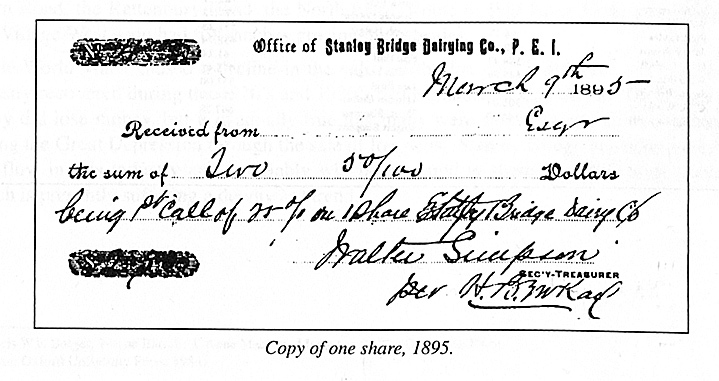 Office of Stanley Bridge Dairying Co., P. E. I.
March 9th 1895
Received from Esqr
the sum of Two 50/100 Dollars
being 1st Call of on 1 Share Bridge Dairy Co
Walter Simpson
SEC'Y-TREASURER
per
Copy of one share, 1895.